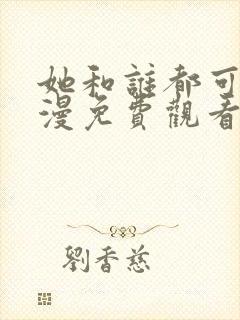 她和誰都可
漫免費觀看
劉香慈